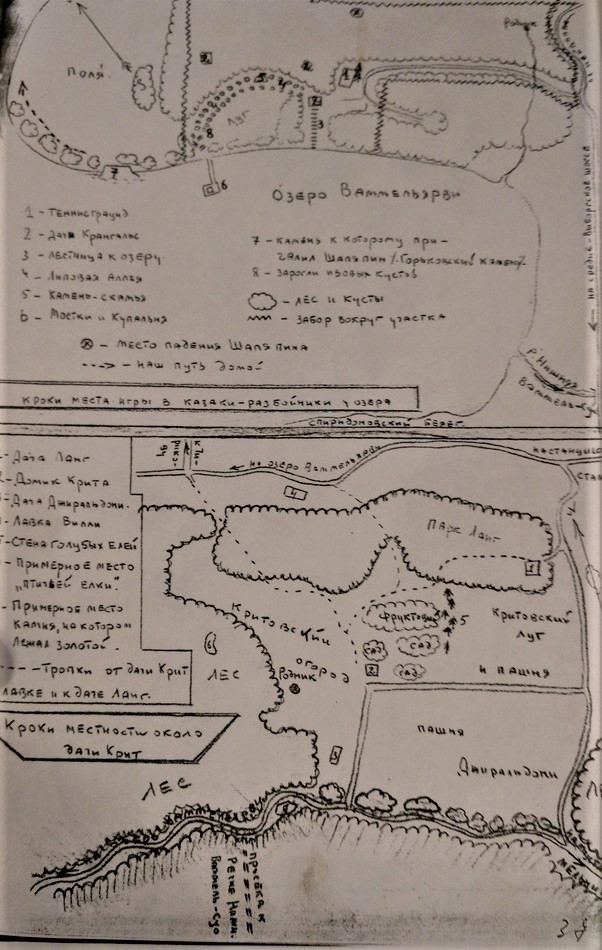 Родник
Поля
Луг
5
4
2
1
2
3
8
7
6
Озеро Ваммельярви
1 – Теннисграунд
2 – Дача Крангальс
3 – Лестница к озеру
4 – Липовая Аллея
5 – Камень-скамья
6 – Мостки и Купальня
7 – Камень к которому при-
чалил Шаляпин /"Горьковский камень"/.
8 – Заросли ивовых кустов
– Лес и кусты
– Забор вокруг участка
– Место падения Шаляпина
– Наш путь домой
На Средне-Выборгское шоссе
Кроки места игры в казаки-разбойники у озера
Спиридоновский берег
– Дача Ланг
– Домик Крита
– Дача Джиральдони.
– Лавка Вилли
– Стена голубых елей
– Примерное место
„птичьей елки".
– Примерное место
камня, на котором
лежал золотой.
– Тропки от дачи Крит
лавке и к даче Ланг.
Кроки местности около
дачи Крит
на озеро Ваммельярви
4
Парк Ланг
1
Критовский
Фруктовый
5
сад
сад
сад
Критовский
луг
и пашня
6
Лес
огород
Родник
2
3
пашня
Джиральдони
Лес
Просека к
речке